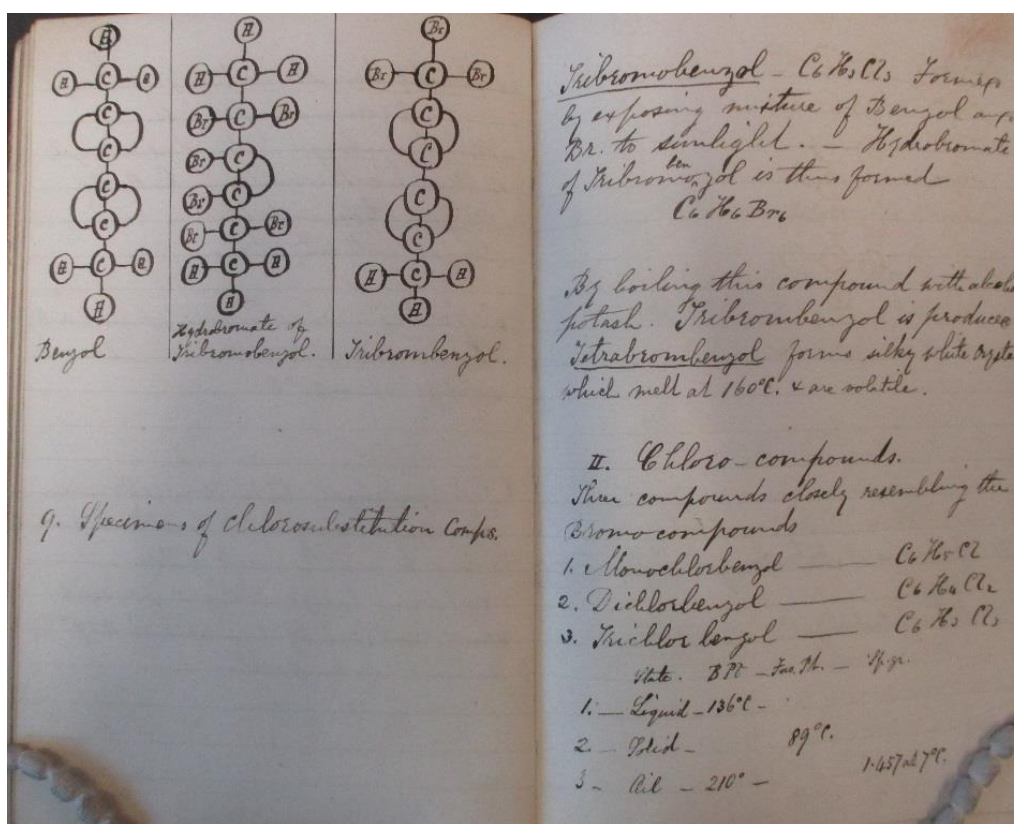 H
H C H
C
C
C
C
H C H
H
Benzol
H
H C H
Br C Br
Br C
Br C
Br C Br
H C H
H
Hydrobromate of
Tribromobenzol.
Br
Br C Br
C
C
C
C
H C H
H
Tribrombenzol.
9. Specimens of chlorosubstitution Comps.
Tribromobenzol - C6 H3 Cl3 Formed
by exposing mixture of Benzol and
Br. to sunlight. - Hydrobromate
of Tribromobenzol is thus formed
C6 H6 Br6
By boiling this compound with alcohol
potash. Tribrombenzol is produced
Tetrabrombenzol forms silky white crysta
which melt at 160°C. & are volatile.
II. Chloro-compounds.
Three compounds closely resembling the
Bromo compounds
1. Monochlorbenzol — C6 H5 Cl
2. Dichlorbenzol — C6 H4 Cl2
3. Trichlor benzol — C6 H3 Cl3
State. B Pt - Fus. Pt. - Sp. gr.
1. - Liquid - 136°C -
2. - Solid - 89°C.
3 - Oil - 210° - 1.457 at 7°C.